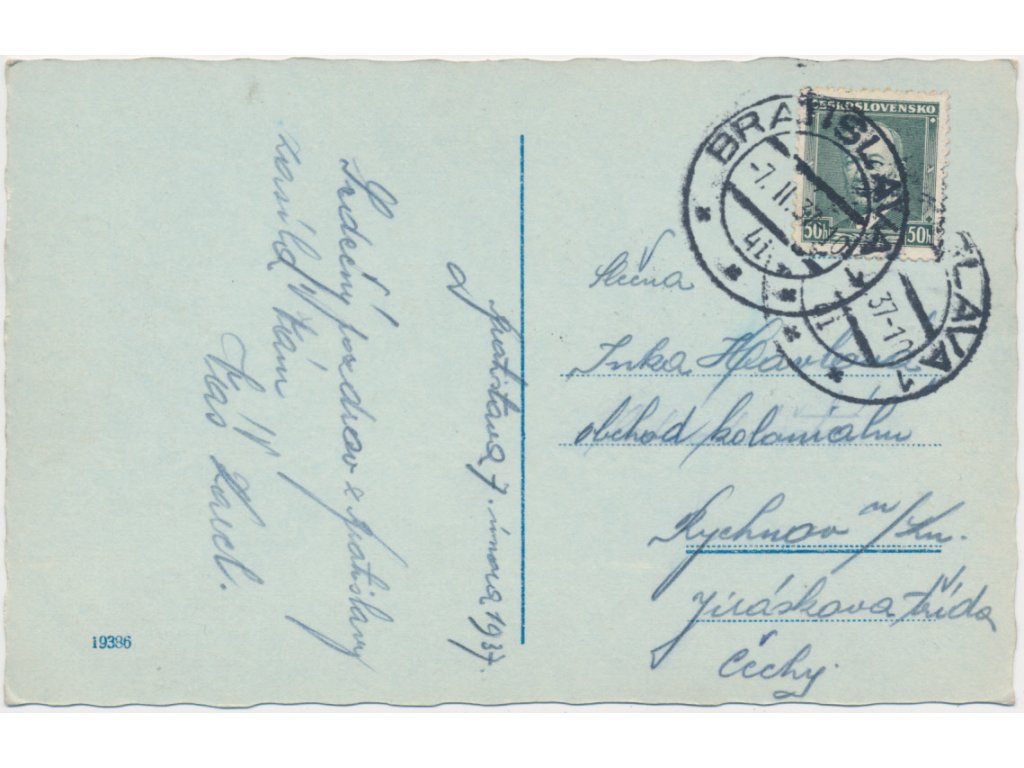 V Bratislava 7. února 1937.
Srdečný pozdrav z Bratislavy
zasílá Vám
Váš Karel.
19386
ČESKOSLOVENSKO
50h 50h
BRATISLAVA
-7.II.37
BRATISLAVA 1
37-1
Slečna
Inka
obchod koloniálu
Rychnov n/Kn.
Jiráskova třída
Čechy